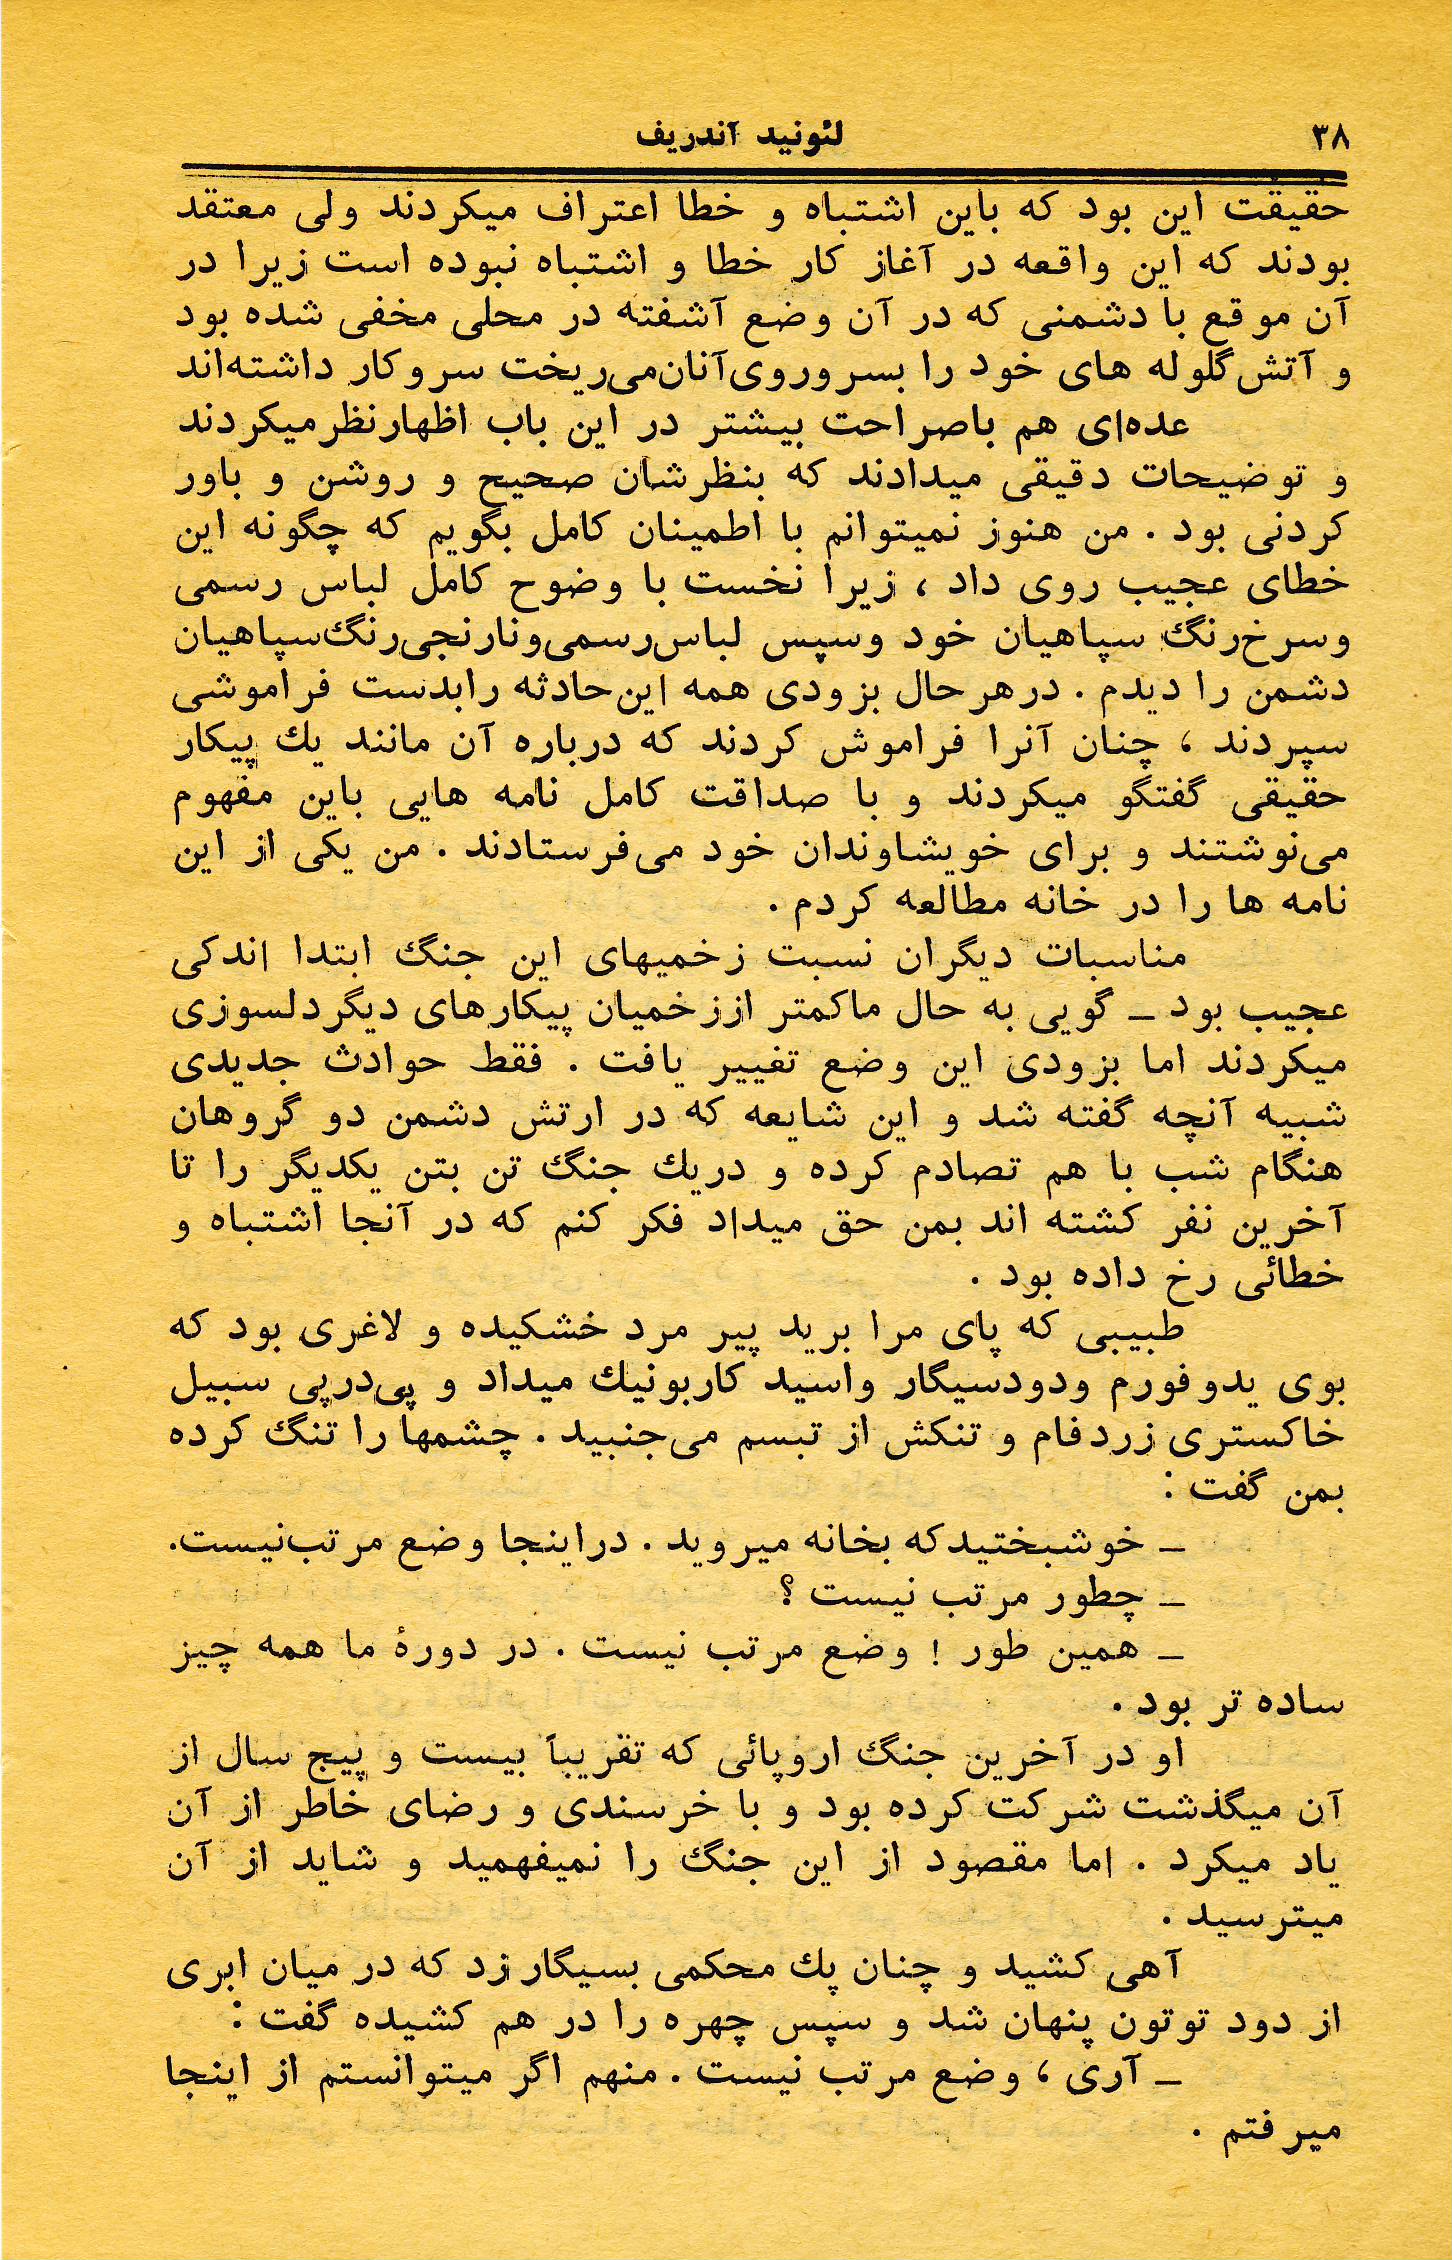 ۳۸
لئونید آندریف
حقیقت این بود که باین اشتباه و خطا اعتراف میکردند ولی معتقد
بودند که این واقعه در آغاز کار خطا و اشتباه نبوده است زیرا در
آن موقع با دشمنی که در آن وضع آشفته در محلی مخفی شده بود
و آتش گلوله های خود را بسر وروی آنان می‌ریخت سروکار داشته‌اند
عده‌ای هم باصراحت بیشتر در این باب اظهارنظر میکردند
و توضیحات دقیقی میدادند که بنظرشان صحیح و روشن و باور
کردنی بود . من هنوز نمیتوانم با اطمینان کامل بگویم که چگونه این
خطای عجیب روی داد ، زیرا نخست با وضوح کامل لباس رسمی
وسرخ‌رنگ سپاهیان خود وسپس لباس رسمی ونارنجی رنگ سپاهیان
دشمن را دیدم . درهرحال بزودی همه این حادثه رابدست فراموشی
سپردند ، چنان آنرا فراموش کردند که درباره آن مانند یك پیکار
حقیقی گفتگو میکردند و با صداقت کامل نامه هایی باین مفهوم
می‌نوشتند و برای خویشاوندان خود می‌فرستادند . من یکی از این
نامه ها را در خانه مطالعه کردم .
مناسبات دیگران نسبت زخمیهای این جنگ ابتدا اندکی
عجیب بود ـ گویی به حال ماکمتر اززخمیان پیکارهای دیگردلسوزی
میکردند اما بزودی این وضع تغییر یافت . فقط حوادث جدیدی
شبیه آنچه گفته شد و این شایعه که در ارتش دشمن دو گروهان
هنگام شب با هم تصادم کرده و دریك جنگ تن بتن یکدیگر را تا
آخرین نفر کشته اند بمن حق میداد فکر کنم که در آنجا اشتباه و
خطائی رخ داده بود .
طبیبی که پای مرا برید پیر مرد خشکیده و لاغری بود که
بوی یدوفورم ودودسیگار واسید کاربونیك میداد و پی‌درپی سبیل
خاکستری زردفام و تنکش از تبسم می‌جنبید . چشمها را تنگ کرده
بمن گفت :
ـ خوشبختیدکه بخانه میروید . دراینجا وضع مرتب‌نیست.
ـ چطور مرتب نیست ؟
ـ همین طور ! وضع مرتب نیست . در دورهٔ ما همه چیز
ساده تر بود .
او در آخرین جنگ اروپائی که تقریباً بیست و پیج سال از
آن میگذشت شرکت کرده بود و با خرسندی و رضای خاطر از آن
یاد میکرد . اما مقصود از این جنگ را نمیفهمید و شاید از آن
میترسید .
آهی کشید و چنان پك محکمی بسیگارزد که در میان ابری
از دود توتون پنهان شد و سپس چهره را در هم کشیده گفت :
ـ آری ، وضع مرتب نیست . منهم اگر میتوانستم از اینجا
میرفتم .